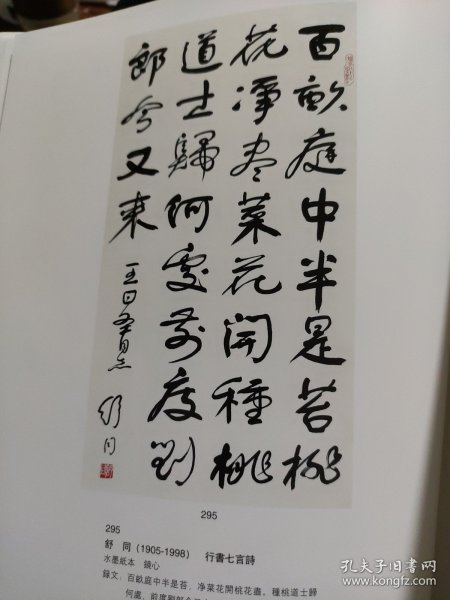 百畝庭中半是苔桃
花淨盡菜花開種桃
道士歸何處前度劉
郎今又来
舒同
295
295
舒 同（1905-1998） 行書七言詩
水墨紙本 鏡心
錄文：百畝庭中半是苔，净菜花開桃花盡。種桃道士歸
何處，前度劉郎今又
孔夫子旧书网